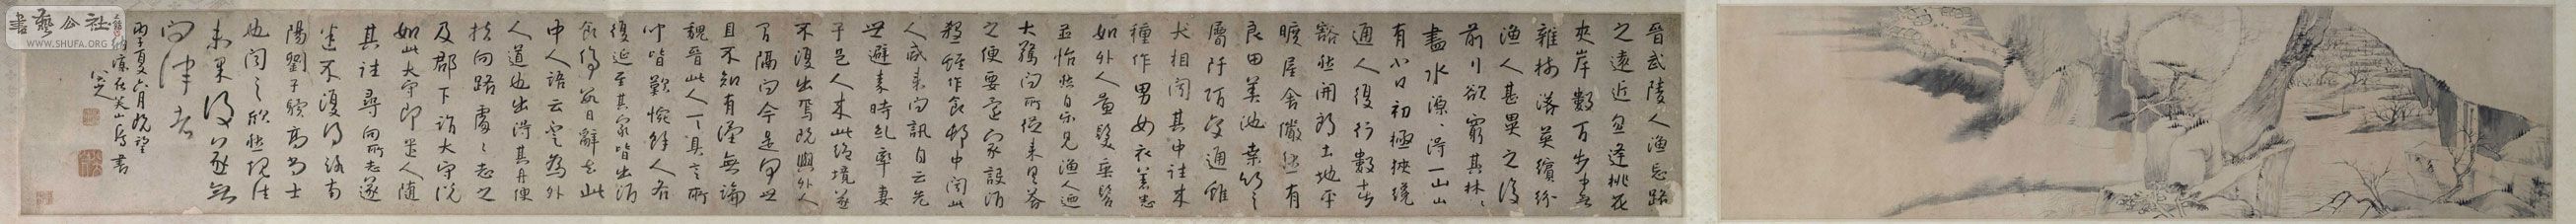 晉武陵人漁忘路
之遠近忽逢桃花
夾岸數百步中無
雜樹落英繽紛
漁人甚異之復
前行欲窮其林〻
盡水源〻得一山山
有小口初極狹纔
通人復行數十步
豁然開朗土地平
曠屋舍儼然有
良田美池桑竹之
屬阡陌交通雞
犬相聞其中往來
種作男女衣著悉
如外人黃髮垂髫
並怡然自樂見漁人迺
大驚問所從來具答
之便要還家設酒
殺雞作食邨中聞此
人咸來問訊自云先
世避秦時亂率妻
子邑人來此絕境遂
不復出焉既與外人
間隔問今是何世
且不知有漢無論
魏晉此人一一具言所
聞皆歎惋餘人各
復延至其家皆出酒
食停數日辭去此
中人語云不足為外
人道也出得其舟便
扶向路處〻志之
及郡下詣大守說
如此太守即遣人隨
其往尋向所志遂
迷不復得路南
陽劉子驥高尚士
也聞之欣然規往
未果後遂無
問津者
丙子夏六月既望
納涼在芙山房書
八大山人
書藝公社
WWW.SHUFA.ORG